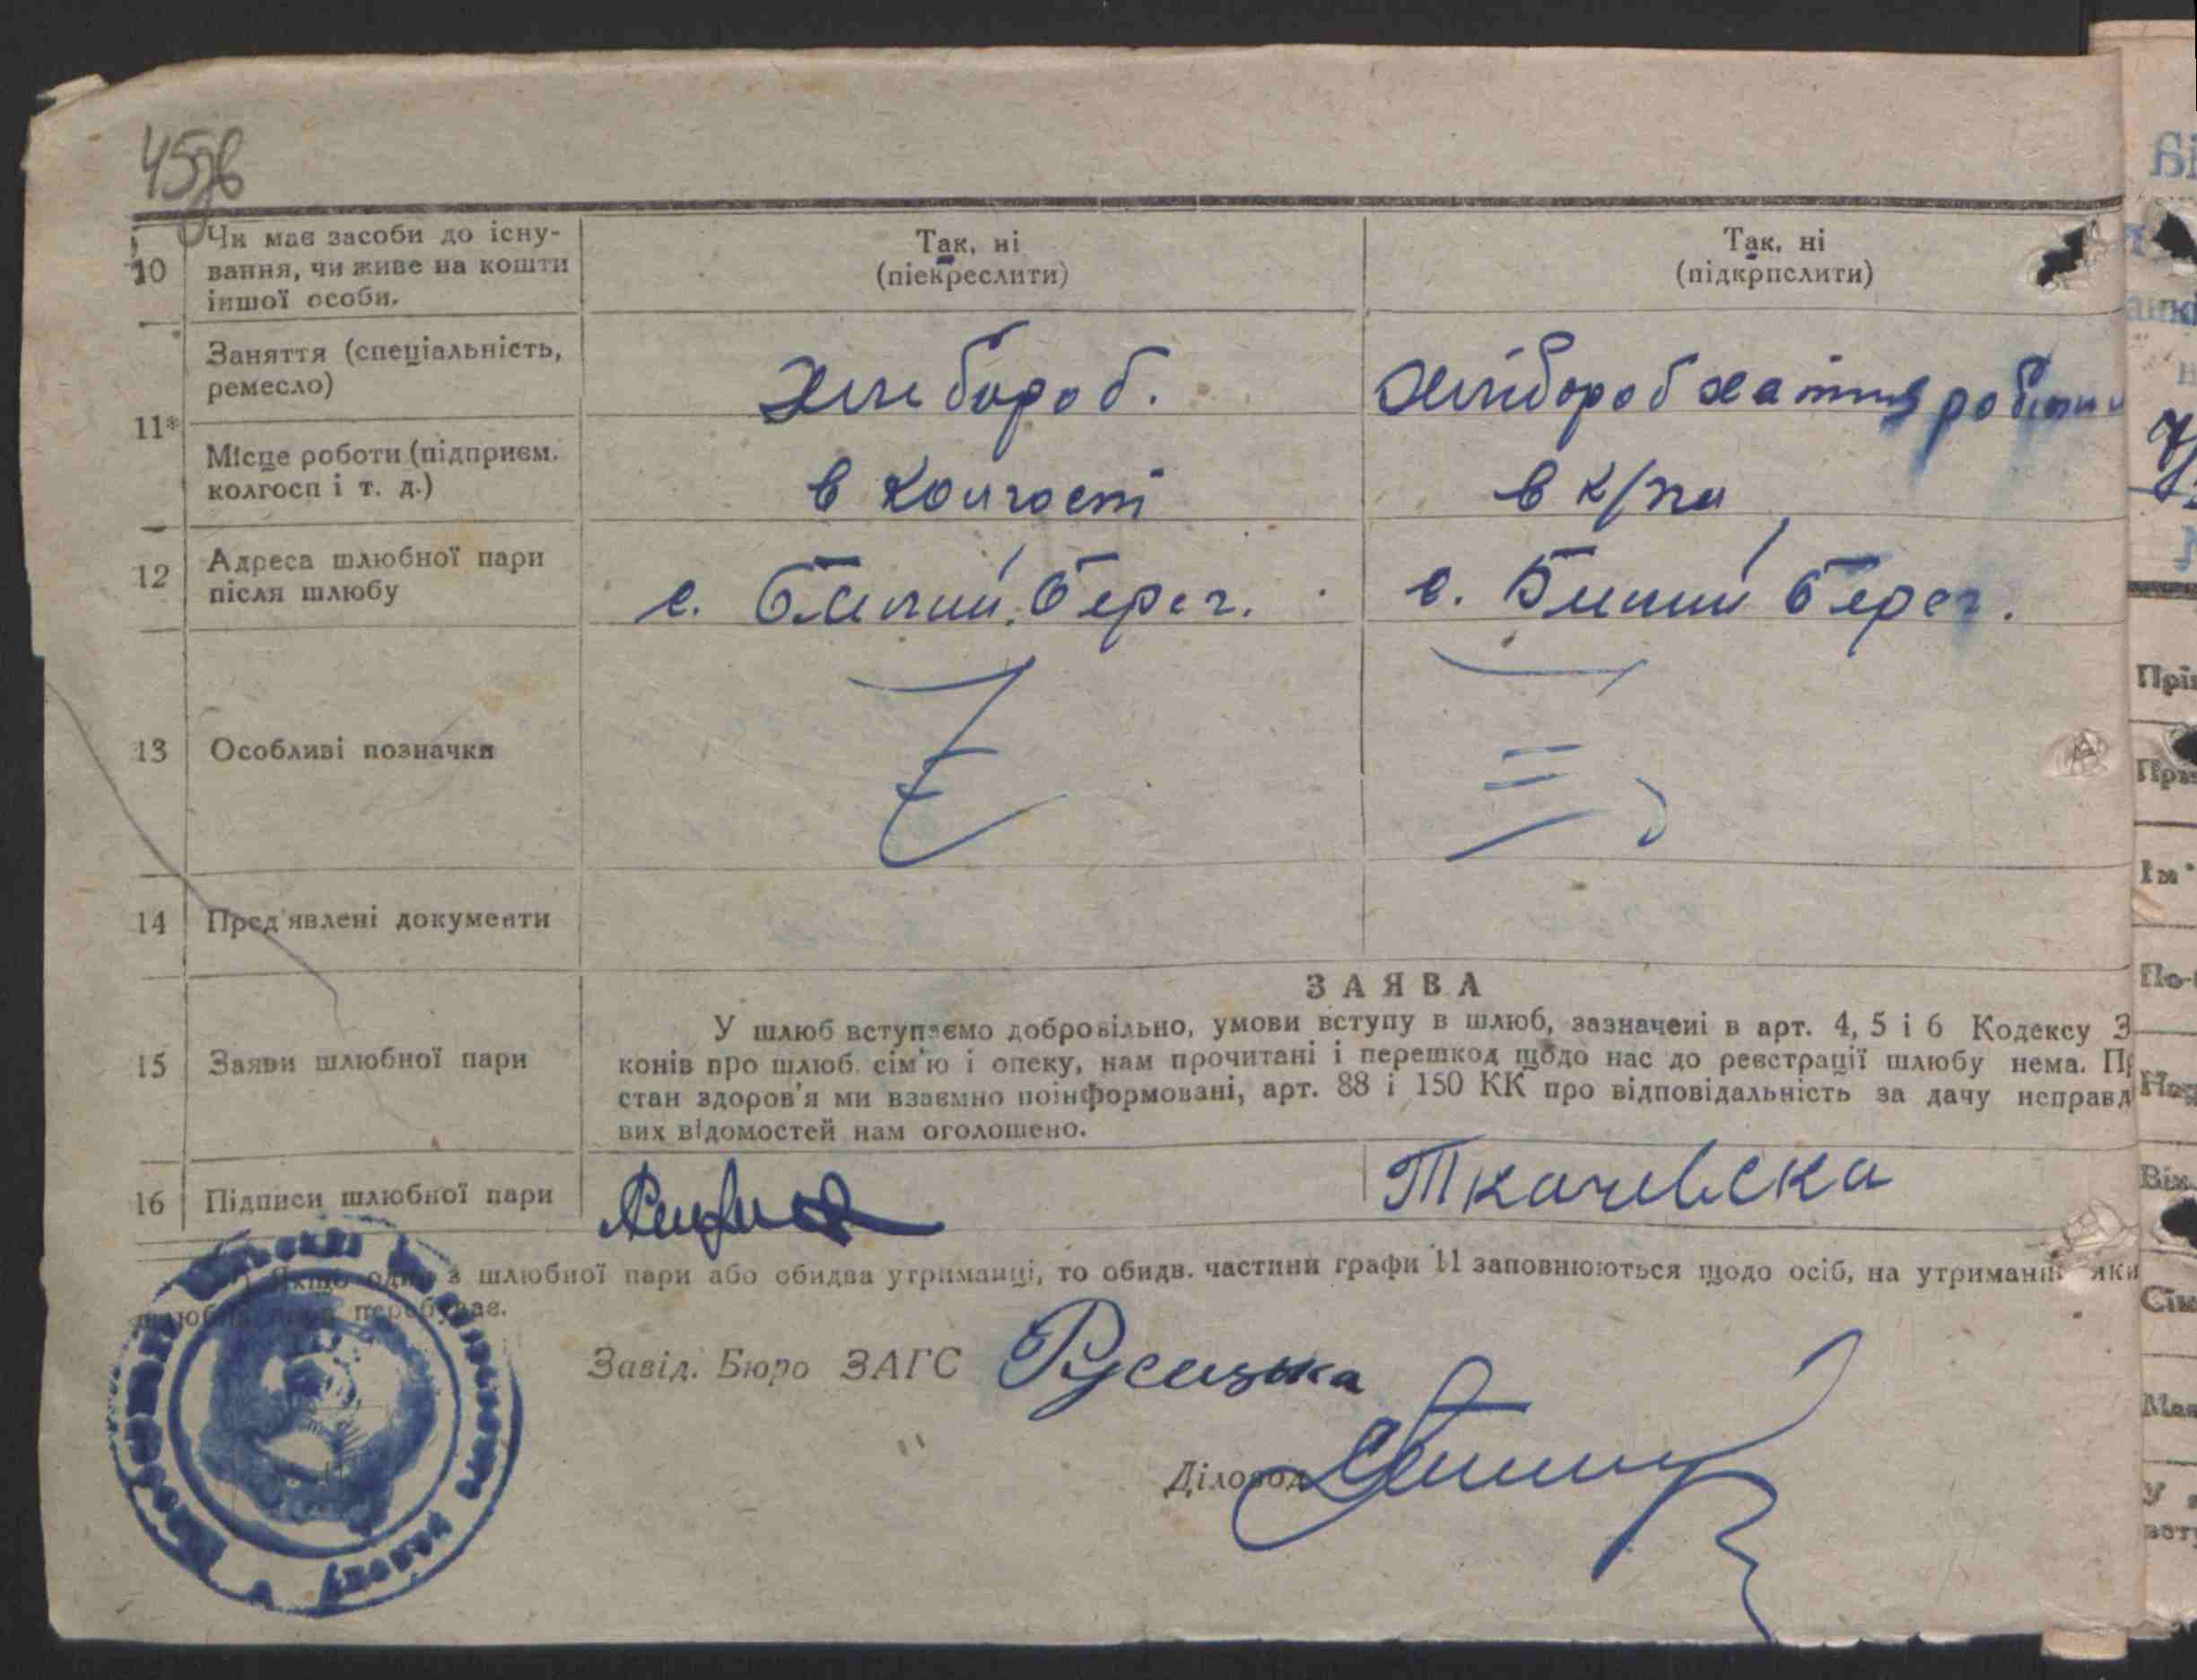 45зв
10 Чи має засоби до існу-
вання, чи живе на кошти
іншої особи.
Так, ні
(піекреслити)
Так, ні
(підкрпслити)
11*
Заняття (спеціальність,
ремесло)
Хлібороб.
Хлібороб хатня
Місце роботи (підприєм.
колгосп і т. д.)
в колгоспі
в к/г
12 Адреса шлюбної пари
після шлюбу
с. Білий берег.
с. Білий берег.
13 Особливі позначки
14 Пред'явлені документи
15 Заяви шлюбної пари
ЗАЯВА
У шлюб вступаємо добровільно, умови вступу в шлюб, зазначені в арт. 4, 5 і 6 Кодексу З
конів про шлюб. сім'ю і опеку, нам прочитані і перешкод щодо нас до реєстрації шлюбу нема. Пр
стан здоров'я ми взаємно поінформовані, арт. 88 і 150 КК про відповідальність за дачу неправд
вих відомостей нам оголошено.
16 Підписи шлюбної пари
Ткачевска
Якщо один з шлюбної пари або обидва утриманці, то обидв. частини графи 11 заповнюються щодо осіб, на утриманні яки
перебуває.
Завід. Бюро ЗАГС
Діловод